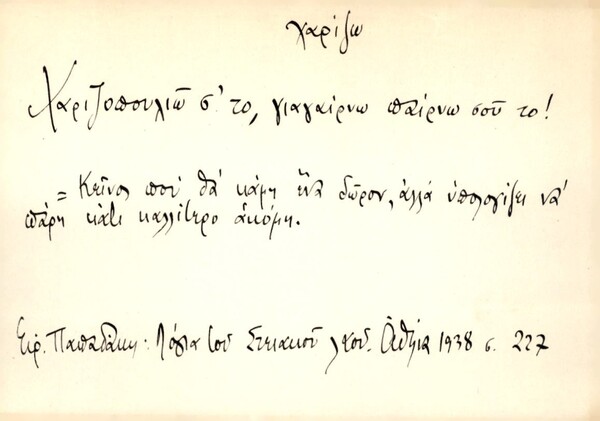 χαρίζω
Χαριζοπουλιῶ σ' το, γιαγαίρνω παίρνω σού το!
= Κεῖνος πού θά κάμη ἕνα δῶρον, ἀλλά ὑπολογίζει νά
πάρη κάτι καλλίτερο ἀκόμη.
Εἰρ. Παπαδάκη: Λόγια τοῦ Στειακοῦ λαοῦ. Ἀθῆναι 1938 σ. 227